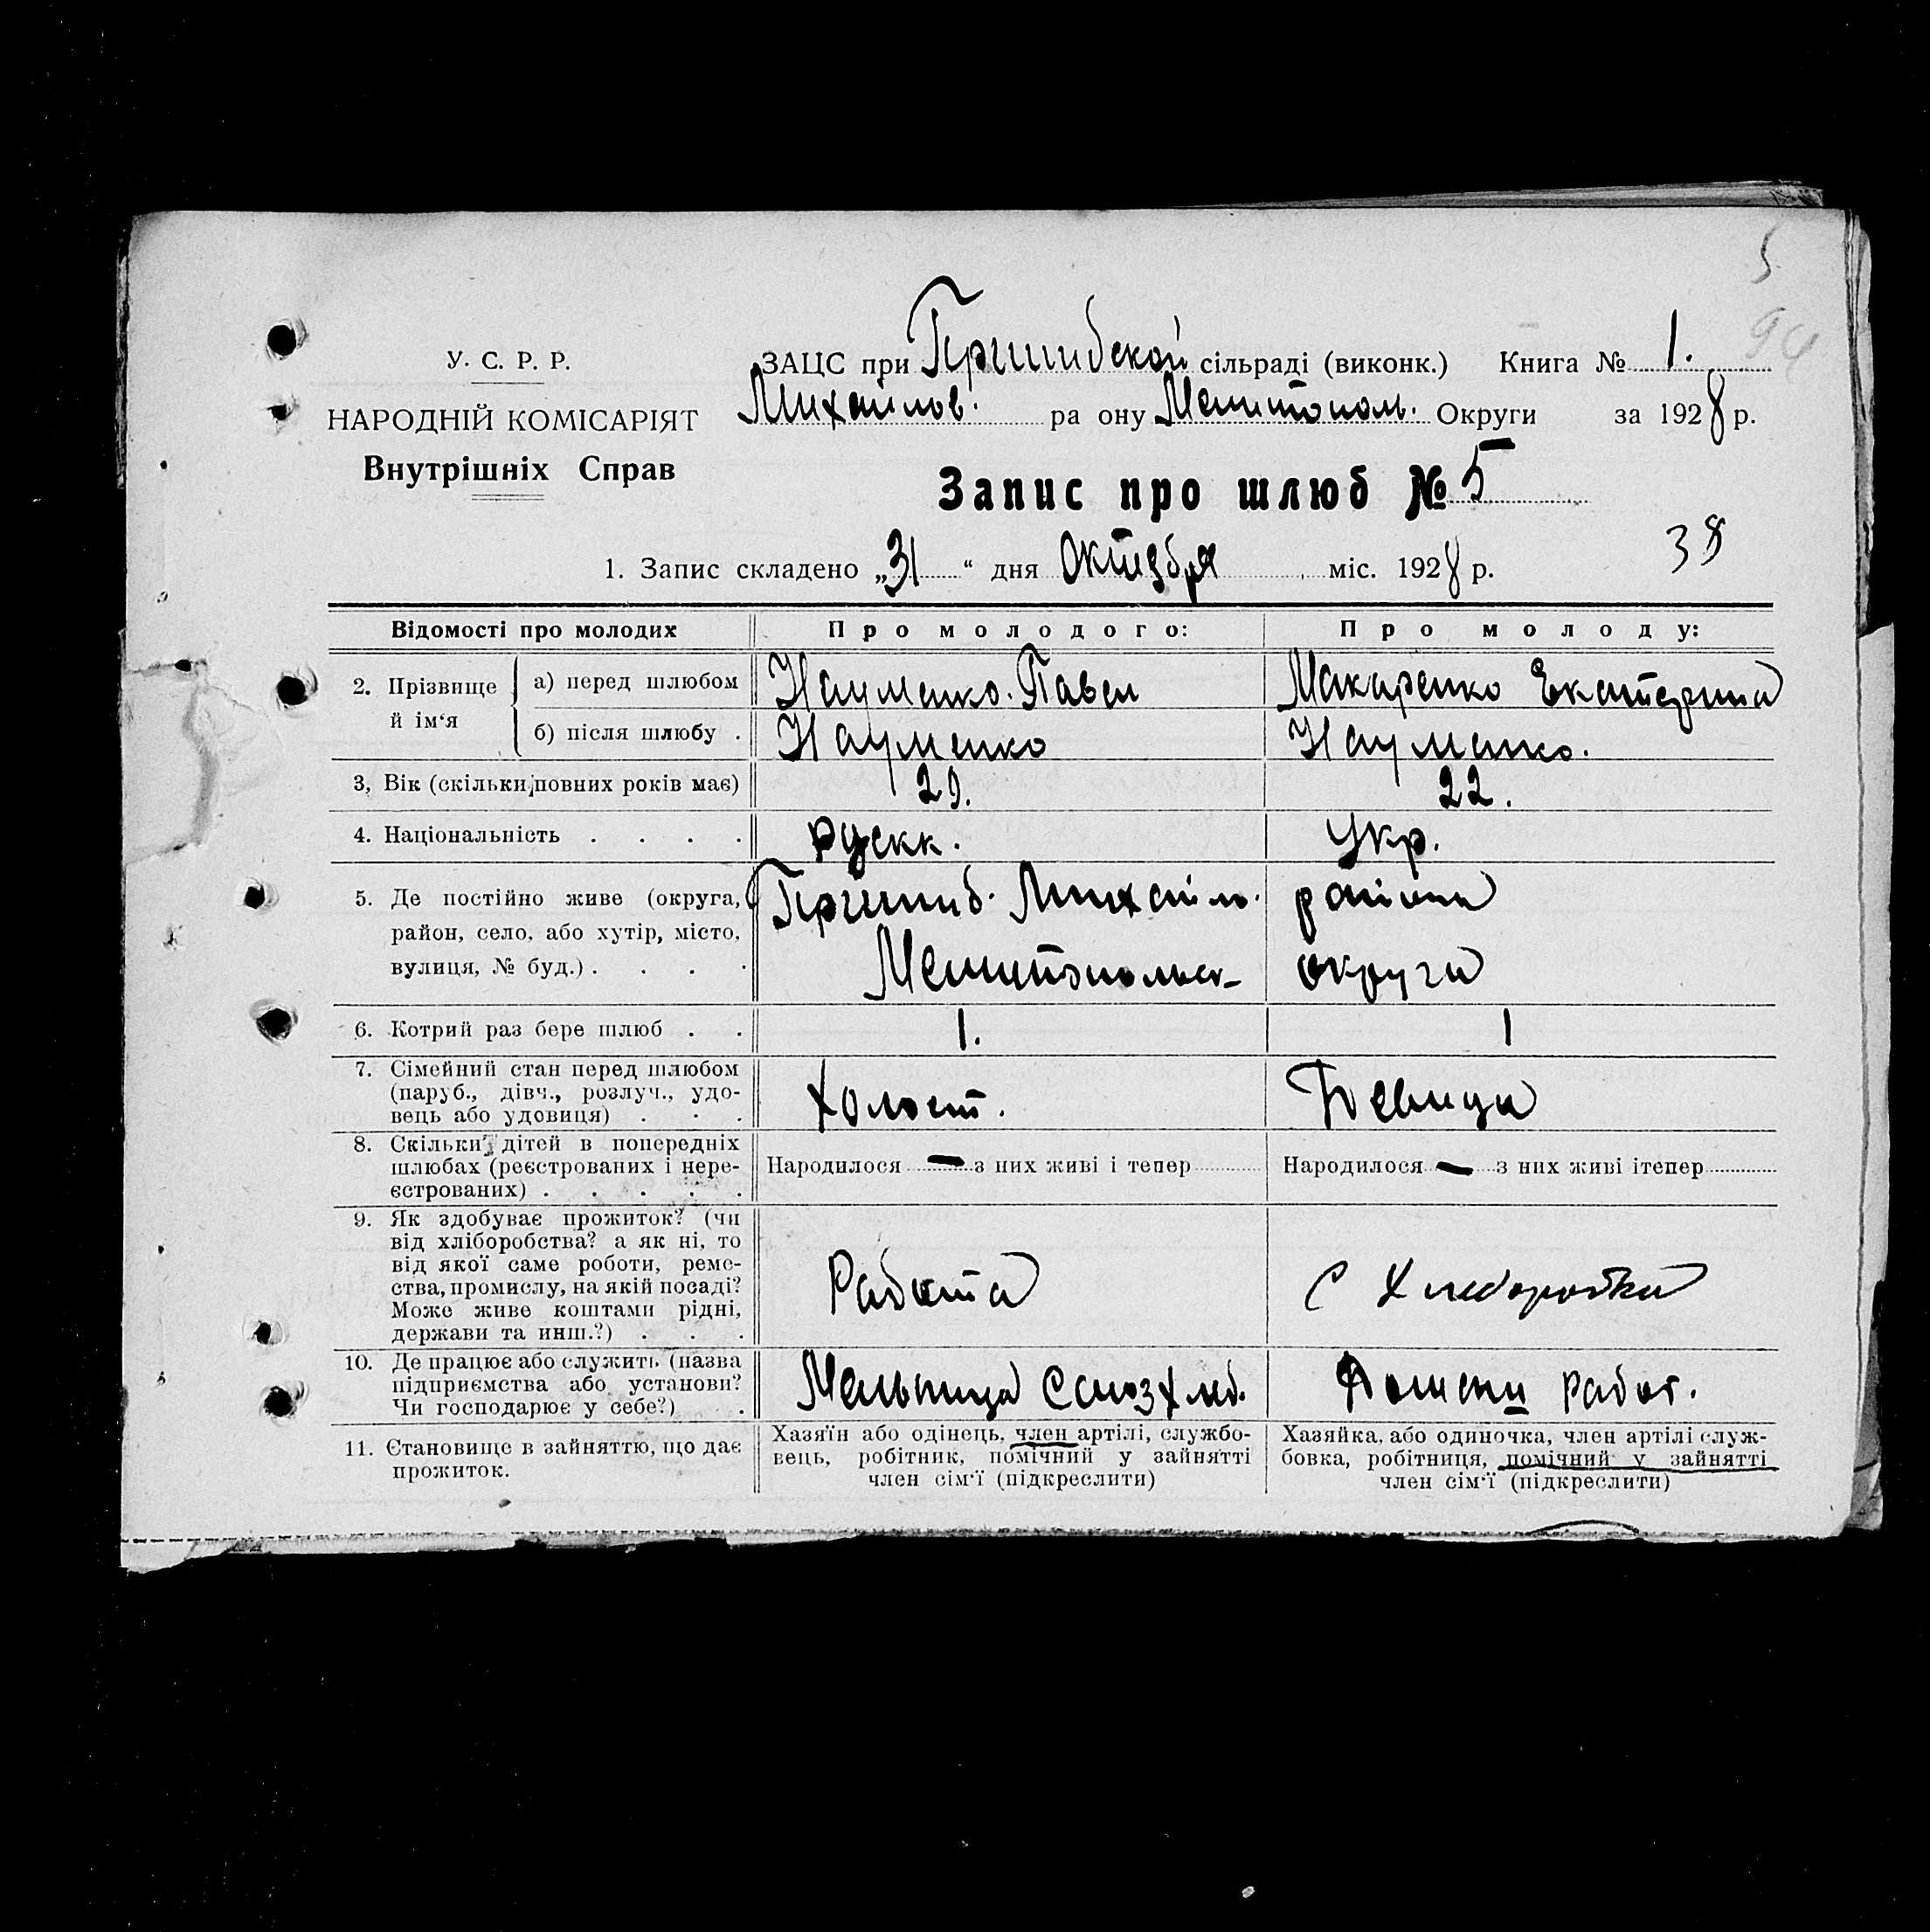 5
94
У. С. Р. Р.
ЗАЦС при Пришибской сільраді (виконк.) Книга № 1.
НАРОДНІЙ КОМІСАРІЯТ
Михайлов. ра ону Мелитополь. Округи за 1928 р.
Внутрішніх Справ
Запис про шлюб № 5
1. Запис складено „31“ дня Октября міс. 1928 р.
38
Відомості про молодих Про молодого: Про молоду:
2. Прізвище й ім‘я
а) перед шлюбом Науменко Павел Макаренко Екатерина
б) після шлюбу . Науменко Науменко.
3, Вік (скільки повних років має) 29. 22.
4. Національність . . . . русск. Укр.
5. Де постійно живе (округа, Пришиб. Михайл. района
район, село, або хутір, місто,
вулиця, № буд.) . . . . Мелитопольск- округа
6. Котрий раз бере шлюб . . 1. 1
7. Сімейний стан перед шлюбом
(паруб., дівч., розлуч., удо-
вець або удовиця) . . . Холост. Девица
8. Скільки дітей в попередніх
шлюбах (реєстрованих і нере-
єстрованих) . . . . .
Народилося — з них живі і тепер
Народилося — з них живі ітепер
9. Як здобуває прожиток? (чи
від хліборобства? а як ні, то
від якої саме роботи, реме-
ства, промислу, на якій посаді?
Може живе коштами рідні,
держави та инш.?) . . .
Работа
с
10. Де працює або служить (назва
підприємства або установи?
Чи господарює у себе?) .
Мельница Союзхлеб.
работ.
11. Становище в зайняттю, що дає
прожиток.
Хазяїн або одінець, член артілі, службо-
вець, робітник, помічний у зайнятті
член сім‘ї (підкреслити)
Хазяйка, або одиночка, член артілі служ-
бовка, робітниця, помічний у зайнятті
член сім‘ї (підкреслити)